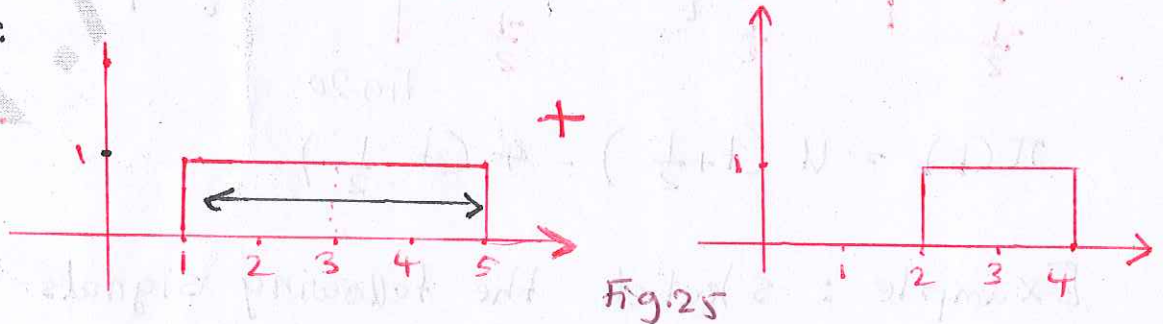 :
1
+
1
1 2 3 4 5
1 2 3 4
Fig.25